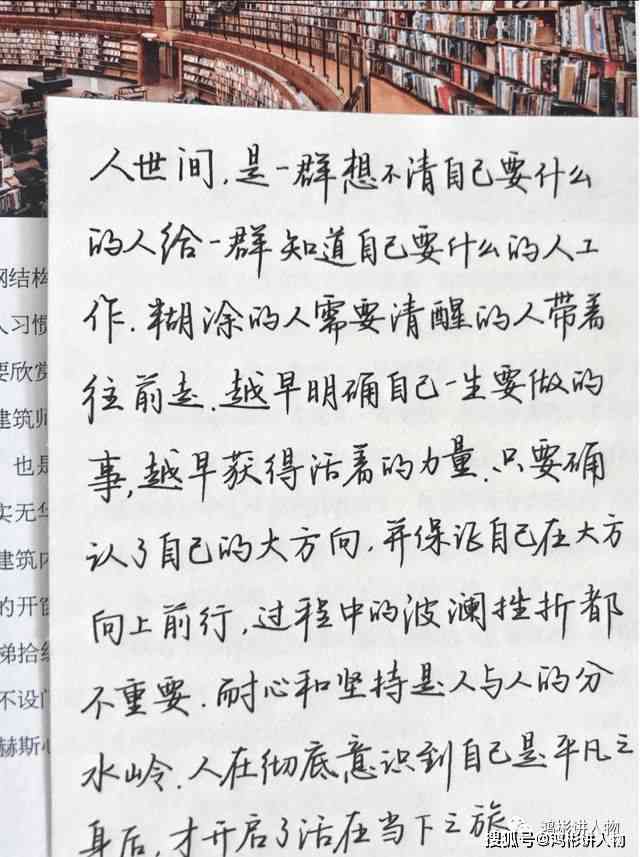 人世间,是一群想不清自己要什么
的人给一群知道自己要什么的人工
作.糊涂的人需要清醒的人带着
往前走.越早明确自己一生要做的
事,越早获得活着的力量.只要确
认了自己的大方向,并保证自己在大方
向上前行,过程中的波澜挫折都
不重要.耐心和坚持是人与人的分
水岭.人在彻底意识到自己是平凡之
身后,才开启了活在当下之旅
钢结构
人习惯
要欣赏
建筑师
也是
实无华
建筑内
的开窗
梯拾级
不设门
赫斯心
鸿彬讲人物
搜狐号@鸿彬讲人物